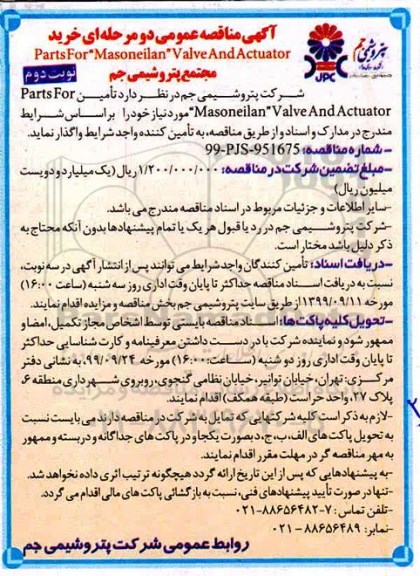 آگهی مناقصه عمومی دو مرحله ای خرید
Parts For "Masoneilan" Valve And Actuator
نوبت دوم
مجتمع پتروشیمی جم
JPC
پتروشیمی جم
شرکت پتروشیمی جم در نظر دارد تأمین Parts For
"Masoneilan" Valve And Actuator مورد نیاز خود را براساس شرایط
مندرج در مدارک و اسناد و از طریق مناقصه، به تأمین کننده واجد شرایط واگذار نماید.
- شماره مناقصه: 99-PJS-951675
- مبلغ تضمین شرکت در مناقصه: ۱/۲۰۰/۰۰۰/۰۰۰ ریال (یک میلیارد و دویست
میلیون ریال)
-سایر اطلاعات و جزئیات مربوط در اسناد مناقصه مندرج می باشد.
-شرکت پتروشیمی جم در رد یا قبول هر یک یا تمام پیشنهادها بدون آنکه محتاج به
ذکر دلیل باشد مختار است.
-دریافت اسناد: تأمین کنندگان واجد شرایط می توانند پس از انتشار آگهی در سه نوبت،
نسبت به دریافت اسناد مناقصه حداکثر تا پایان وقت اداری روز سه شنبه (ساعت ۱۶:۰۰)
مورخه ۱۳۹۹/۰۹/۱۱ از طریق سایت پتروشیمی جم بخش مناقصه و مزایده اقدام نمایند.
-تحویل کلیه پاکت ها: اسناد مناقصه بایستی توسط اشخاص مجاز تکمیل، امضا و
ممهور شود و نماینده شرکت با در دست داشتن معرفینامه و کارت شناسایی حداکثر
تا پایان وقت اداری روز دو شنبه (ساعت ۱۶:۰۰) مورخه ۹۹/۰۹/۲۴، به نشانی دفتر
مرکزی: تهران، خیابان توانیر، خیابان نظامی گنجوی، روبروی شهرداری منطقه ۶،
پلاک ۲۷، واحد حراست (طبقه همکف) اقدام نمایند.
-لازم به ذکر است کلیه شرکتهایی که تمایل به شرکت در مناقصه دارند می بایست نسبت
به تحویل پاکت های الف، ب، ج، د بصورت یکجا و در پاکت های جداگانه و دربسته و ممهور
به مهر مناقصه گر در مهلت مقرر اقدام نمایند.
-به پیشنهادهایی که پس از این تاریخ ارائه گردد هیچگونه ترتیب اثری داده نخواهد شد.
-تنها در صورت تأیید پیشنهادهای فنی، نسبت به بازگشائی پاکت های مالی اقدام می گردد.
-تلفن تماس: ۷-۸۸۶۵۶۴۸۲-۰۲۱
-نمابر: ۸۸۶۵۶۴۸۹-۰۲۱
روابط عمومی شرکت پتروشیمی جم